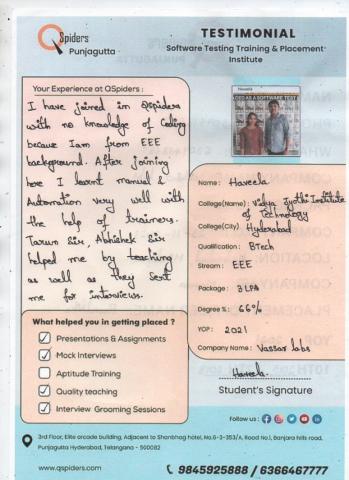 QSpiders
Punjagutta
TESTIMONIAL
Software Testing Training & Placement
Institute
Your Experience at QSpiders :
I have joined in Qspiders
with no knowledge of Coding
because Iam from EEE
background. After joining
here I learnt manual &
Automation very well with
the help of trainers.
Tarun Sir, Abhishek Sir
helped me by teaching
as well as they sent
me for interviews.
Name : Haveela
College(Name) : Vidya Jyothi Institute
of Technology
College(City) : Hyderabad
Qualification : BTech
Stream : EEE
Package : 3 LPA
Degree % : 66%
YOP : 2021
Company Name : Vassar labs
What helped you in getting placed ?
Presentations & Assignments
Mock Interviews
Aptitude Training
Quality teaching
Interview Grooming Sessions
Haveela
Student's Signature
Follow us :
3rd Floor, Elite arcade building, Adjacent to Shanbhag hotel, No.6-3-353/A, Road No.1, Banjara hills road,
Punjagutta Hyderabad, Telangana - 500082
www.qspiders.com
9845925888 / 6366467777